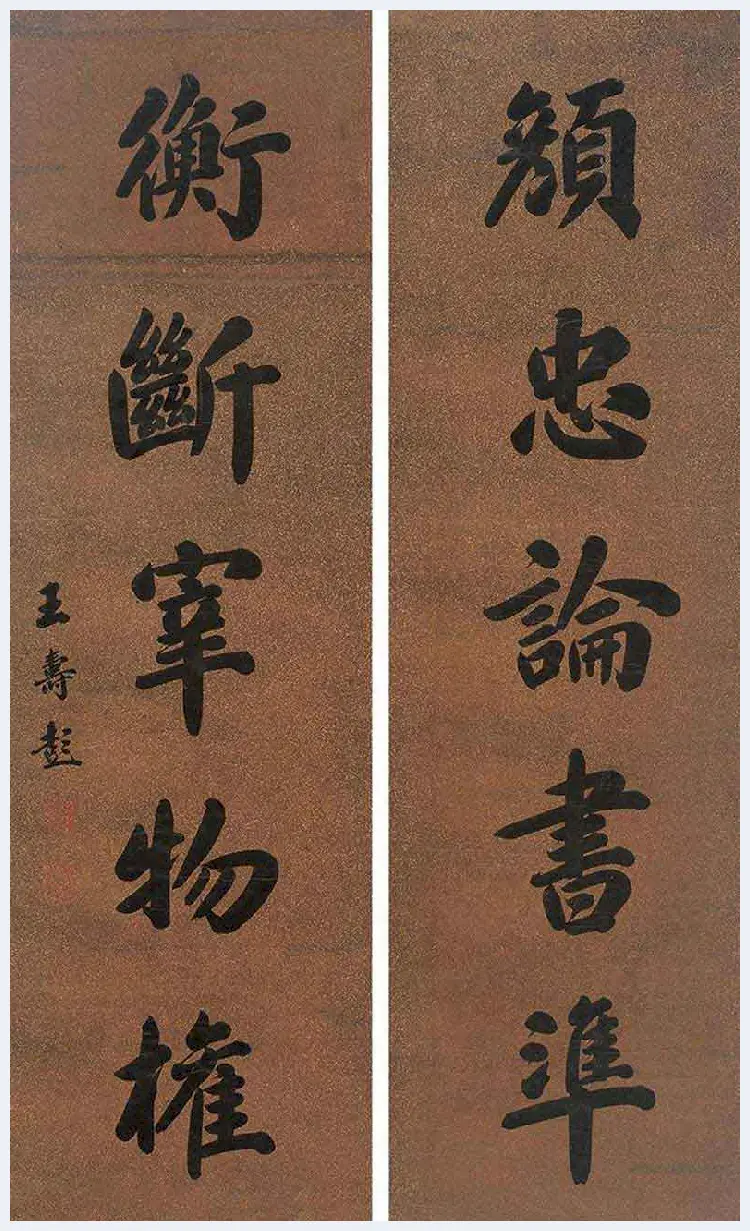 顔忠論書準
衡斷宰物權
王壽彭